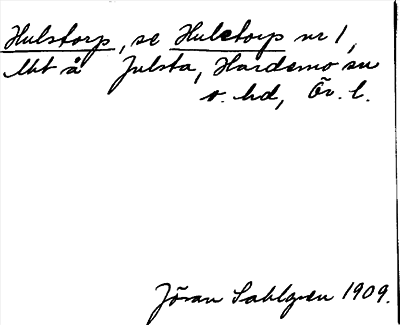 Hulstorp, se Hulstorp nr 1,
lht å Julsta, Hardemo sn
o. hd, Ör. l.
Jöran Sahlgren 1909.